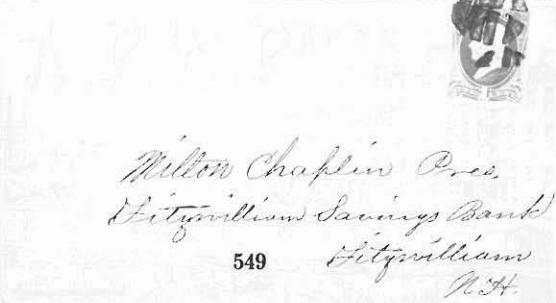 Milton Chaplin Pres.
Fitzwilliam Savings Bank
549
Fitzwilliam
N.H.